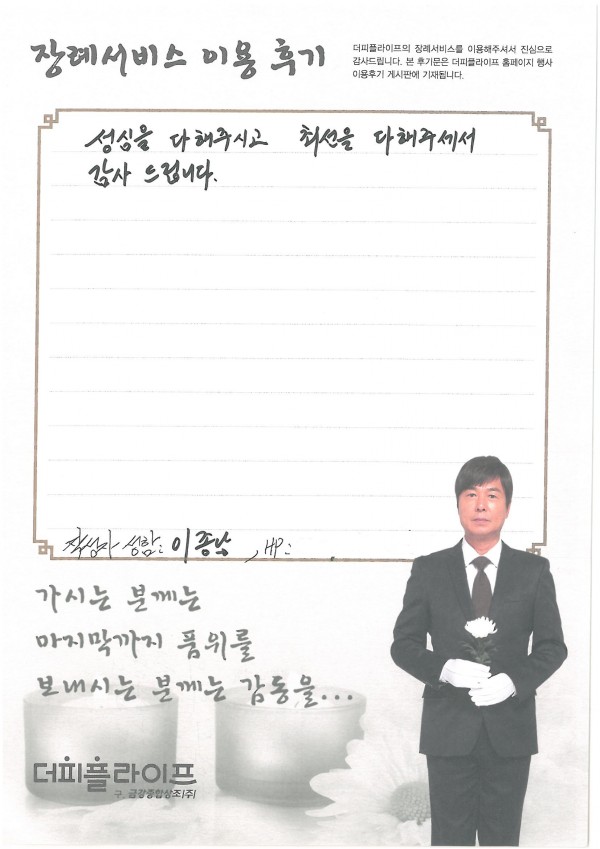 장례서비스 이용 후기
더피플라이프의 장례서비스를 이용해주셔서 진심으로
감사드립니다. 본 후기문은 더피플라이프 홈페이지 행사
이용후기 게시판에 기재됩니다.
성심을 다해주시고 최선을 다해주세서
감사 드립니다.
작성자 성함: 이종낭 , HP:
가시는 분께는
마지막까지 품위를
보내시는 분께는 감동을...
더피플라이프
구. 금강종합상조(주)